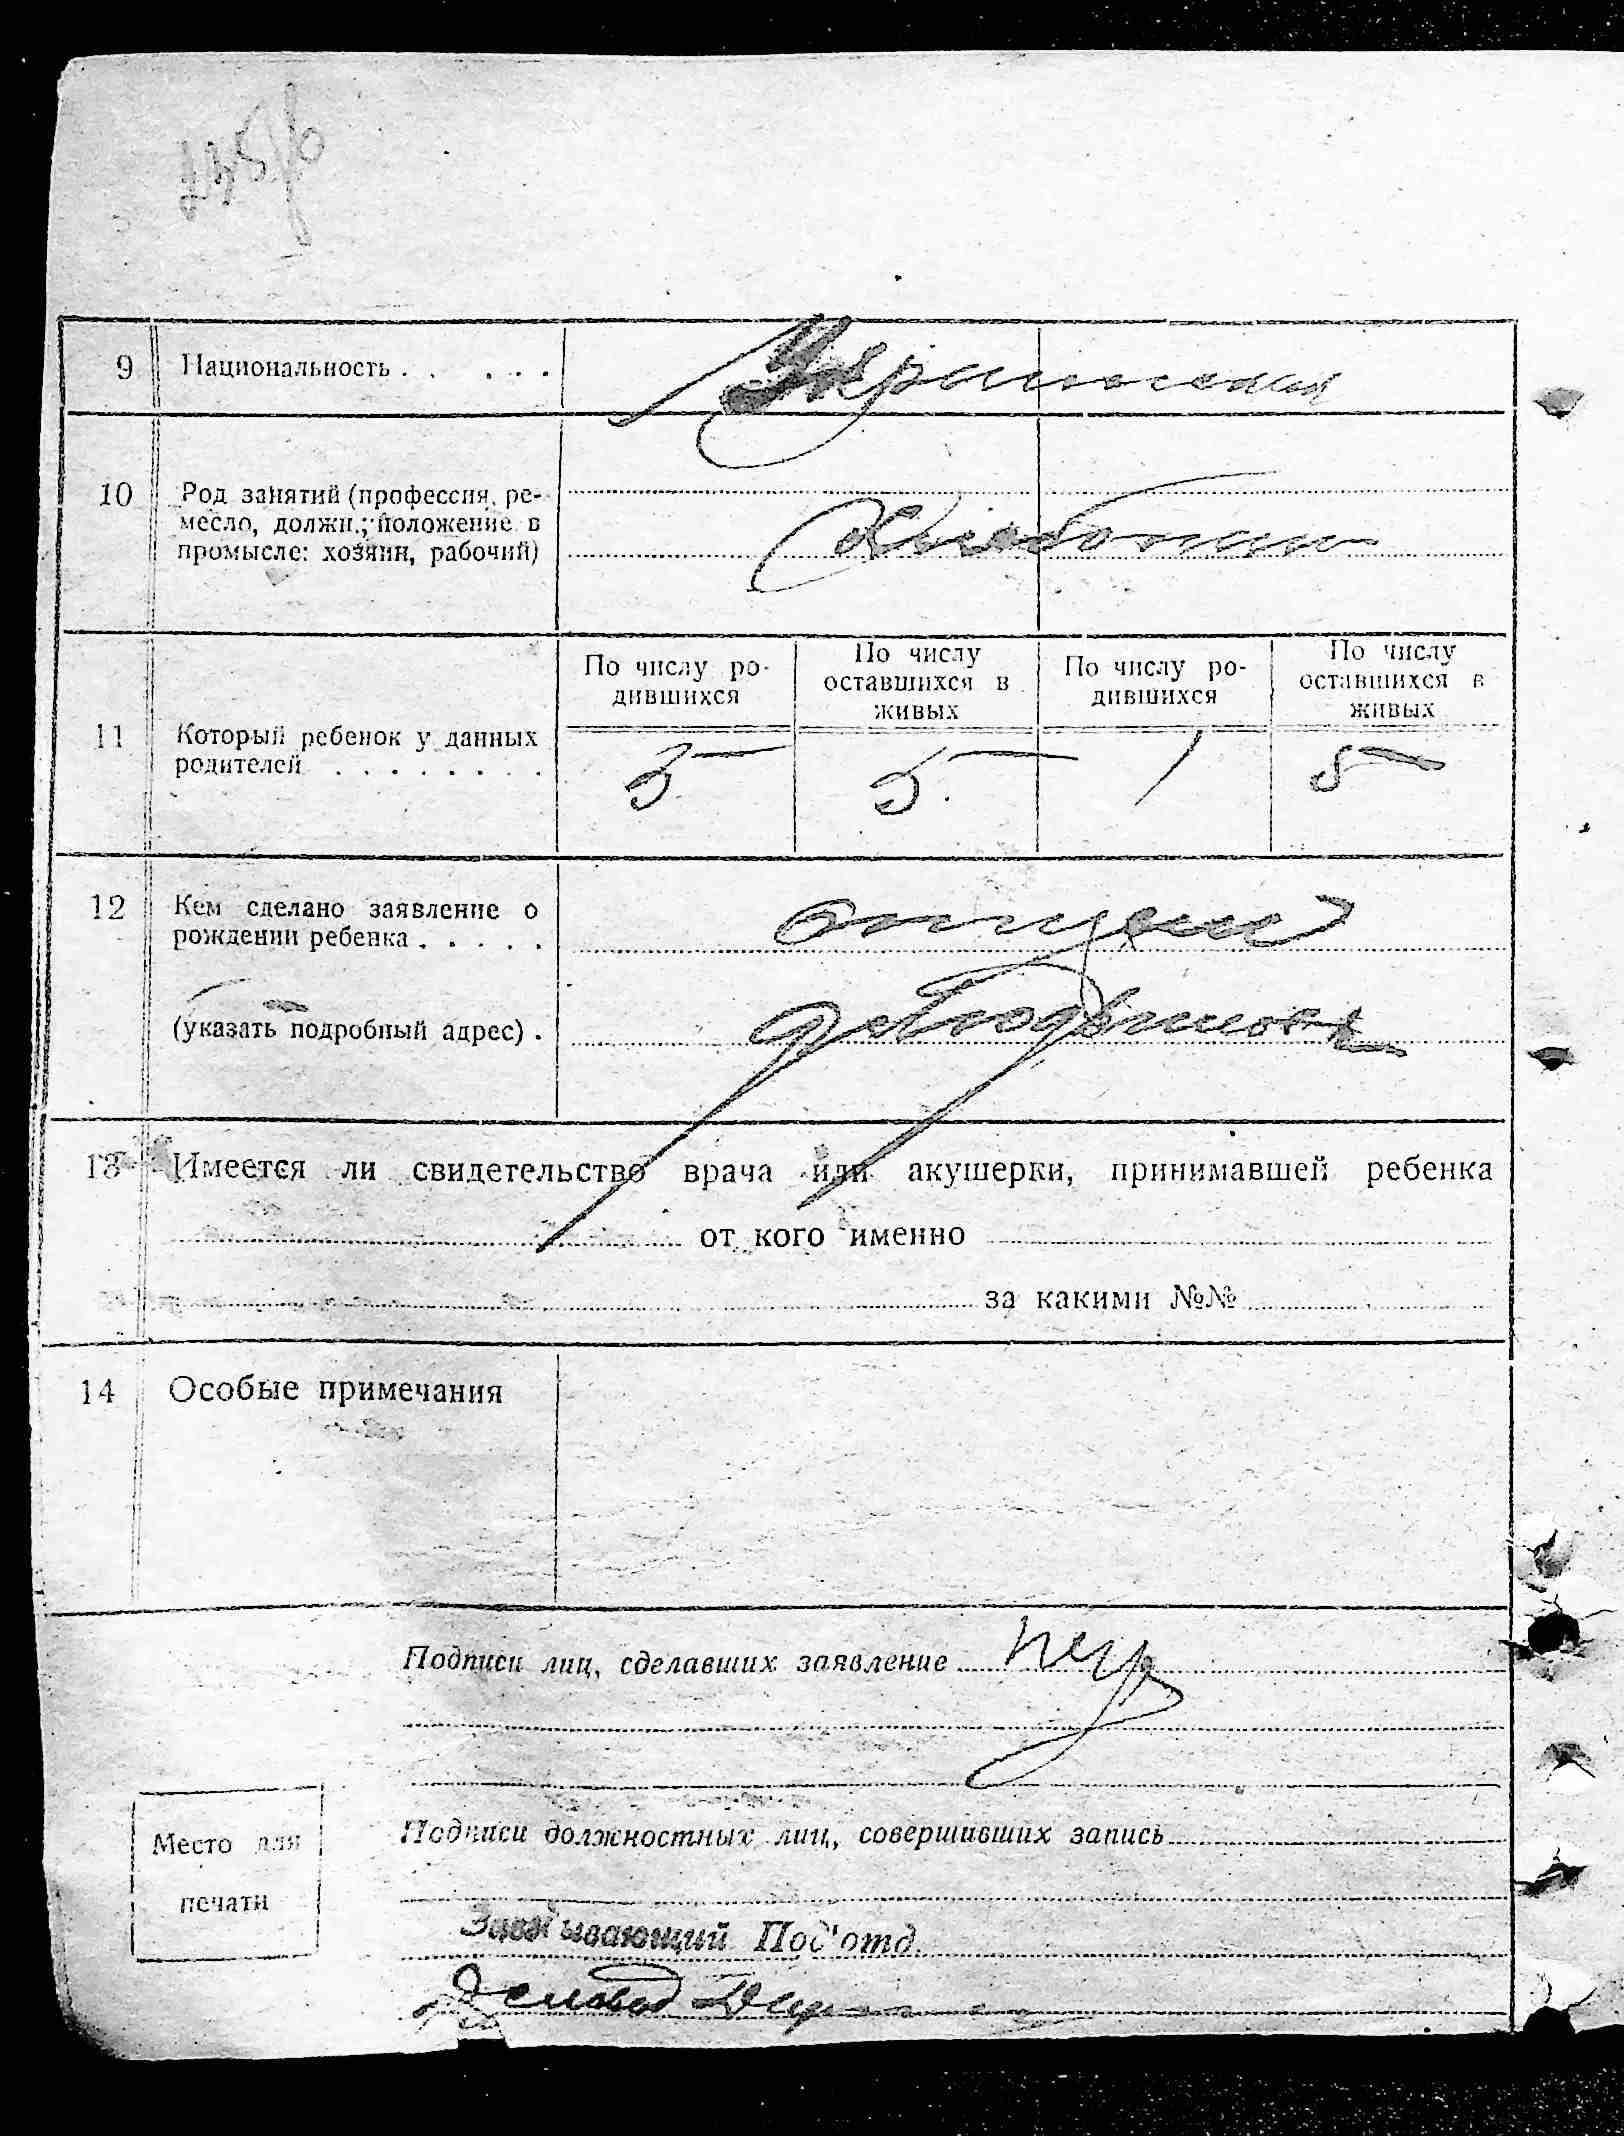 745/6
9 Национальность . . . . . . Украинская
10 Род занятий (профессия, ре-
месло, должн.; положение в
промысле: хозяин, рабочий)
Хлебопаш
По числу ро-
дившихся
По числу
оставшихся в
живых
По числу ро-
дившихся
По числу
оставшихся в
живых
11 Который ребенок у данных
родителей . . . . . . . .
5 5 1 5
12 Кем сделано заявление о
рождении ребенка . . . . .
отцем
(указать подробный адрес) .
13 Имеется ли свидетельство врача или акушерки, принимавшей ребенка
от кого именно
за какими №№
14 Особые примечания
Подписи лиц, сделавших заявление
Место для
печати
Подписи должностных лиц, совершивших запись
Заведывающий Под'отд.
Деловод